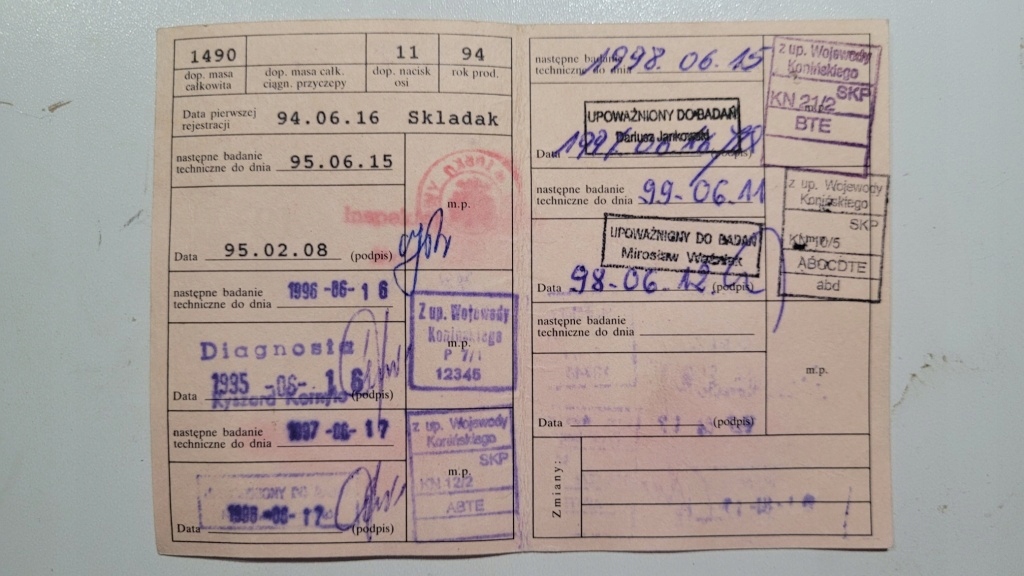 1490
11
94
dop. masa całkowita
dop. masa całk. ciągn. przyczepy
dop. nacisk osi
rok prod.
Data pierwszej rejestracji 94.06.16 Skladak
następne badanie techniczne do dnia 95.06.15
m.p.
Data 95.02.08 (podpis)
następne badanie techniczne do dnia 1996 -06- 16
Z up. Wojewody
Konińskiego
P 7/1
12345
Diagnosta
1995 -06- 16
Data (podpis)
następne badanie techniczne do dnia 1997 -06- 17
z up. Wojewody
Konińskiego
SKP
m.p.
KN 12/2
ABTE
1996 -06- 17
Data (podpis)
następne badanie techniczne do dnia 1998. 06. 15
z up. Wojewody
Konińskiego
SKP
KN 21/2
m.p.
BTE
UPOWAŻNIONY DO BADAŃ
Dariusz Jankowski
Data (podpis)
następne badanie techniczne do dnia 99-06.11
z up. Wojewody
Konińskiego
SKP
m.p.
ABOCDTE
abd
UPOWAŻNIONY DO BADAŃ
Mirosław
Data 98-06.12. (podpis)
następne badanie techniczne do dnia
m.p.
Data (podpis)
Zmiany: